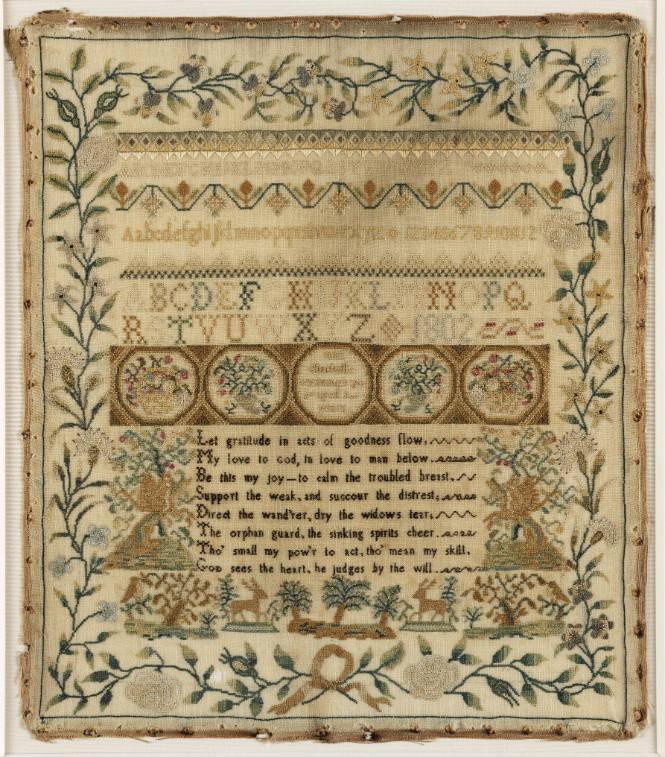 Aabcdefghijklmnopqrstuvwxyz 1 2 3 4 5 6 7 8 9 10 11 12
ABCDEFGHIJKLMNOPQ
RSTVUWXYZ 1802
Let gratitude in acts of goodness flow,
My love to God, in love to man below
Be this my joy—to calm the troubled breast.
Support the weak, and succour the distrest,
Direct the wand'rer, dry the widows tear,
The orphan guard, the sinking spirits cheer
Tho' small my pow'r to act, tho' mean my skill,
God sees the heart, he judges by the will